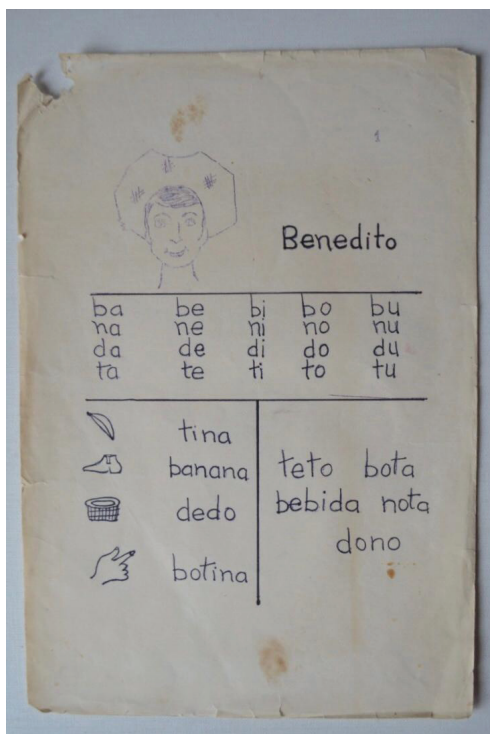 1
Benedito
ba be bi bo bu
na ne ni no nu
da de di do du
ta te ti to tu
tina
banana
dedo
botina
teto bota
bebida nota
dono